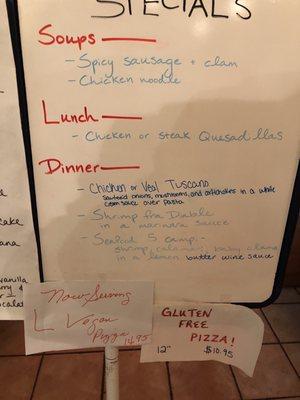 SPECIALS
Soups
- Spicy sausage + clam
- Chicken noodle
Lunch
- Chicken or steak Quesadillas
Dinner
- Chicken or Veal Tuscano
Sauteed onions, mushrooms, and artichokes in a white
cream sauce over pasta
- Shrimp fra Diablo
in a marinara sauce
- Seafood Scampi -
shrimp, calamari, baby clams
in a lemon butter wine sauce
Now Serving
Vegan
Pizza 14.95
GLUTEN
FREE
PIZZA!
12" $10.95
cake
ana
vanilla